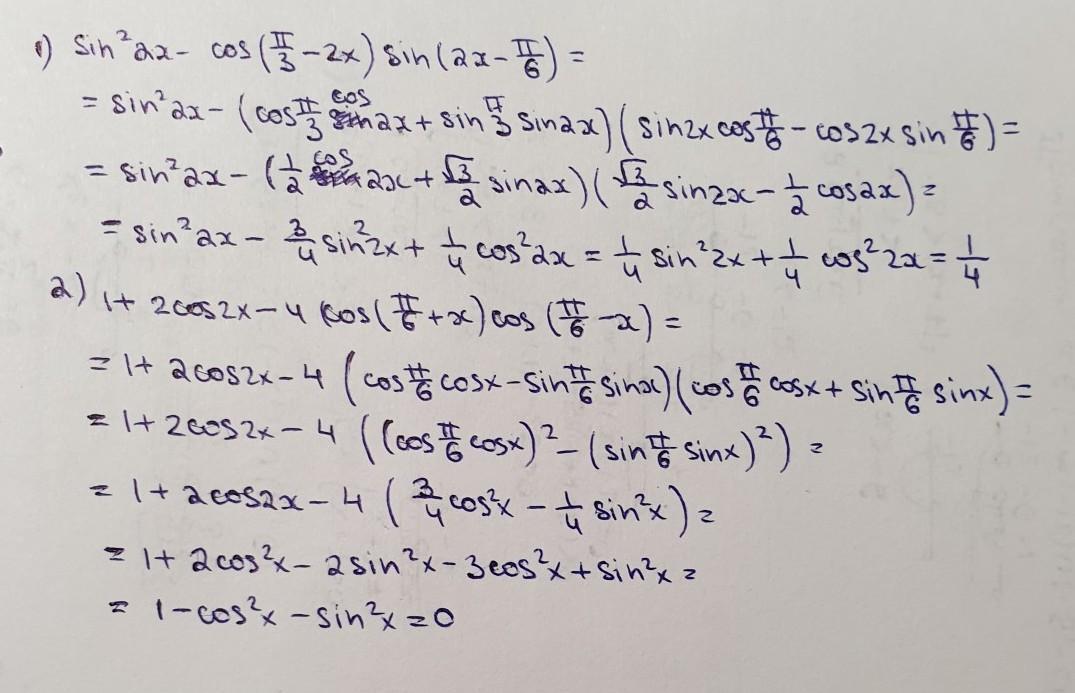 1) sin²2x - cos(π/3 - 2x) sin(2x - π/6) =
= sin²2x - (cos π/3 cos 2x + sin π/3 sin2x)(sin2x cos π/6 - cos2x sin π/6) =
= sin²2x - (1/2 cos 2x + √3/2 sin2x)(√3/2 sin2x - 1/2 cos2x) =
= sin²2x - 3/4 sin²2x + 1/4 cos²2x = 1/4 sin²2x + 1/4 cos²2x = 1/4
2) 1 + 2cos2x - 4 cos(π/6 + x) cos(π/6 - x) =
= 1 + 2cos2x - 4 (cos π/6 cosx - sin π/6 sinx)(cos π/6 cosx + sin π/6 sinx) =
= 1 + 2cos2x - 4 ((cos π/6 cosx)² - (sin π/6 sinx)²) =
= 1 + 2cos2x - 4 (3/4 cos²x - 1/4 sin²x) =
= 1 + 2cos²x - 2sin²x - 3cos²x + sin²x =
= 1 - cos²x - sin²x = 0